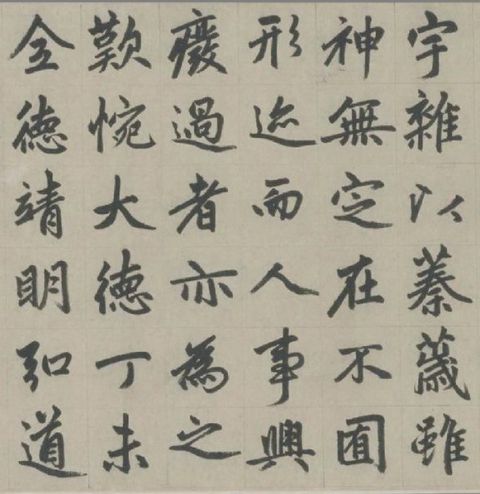 宇雜以蓁薉雖
神無定在不囿
形迹而人事興
廢過者亦為之
歎惋大德丁未
全德靖明弘道